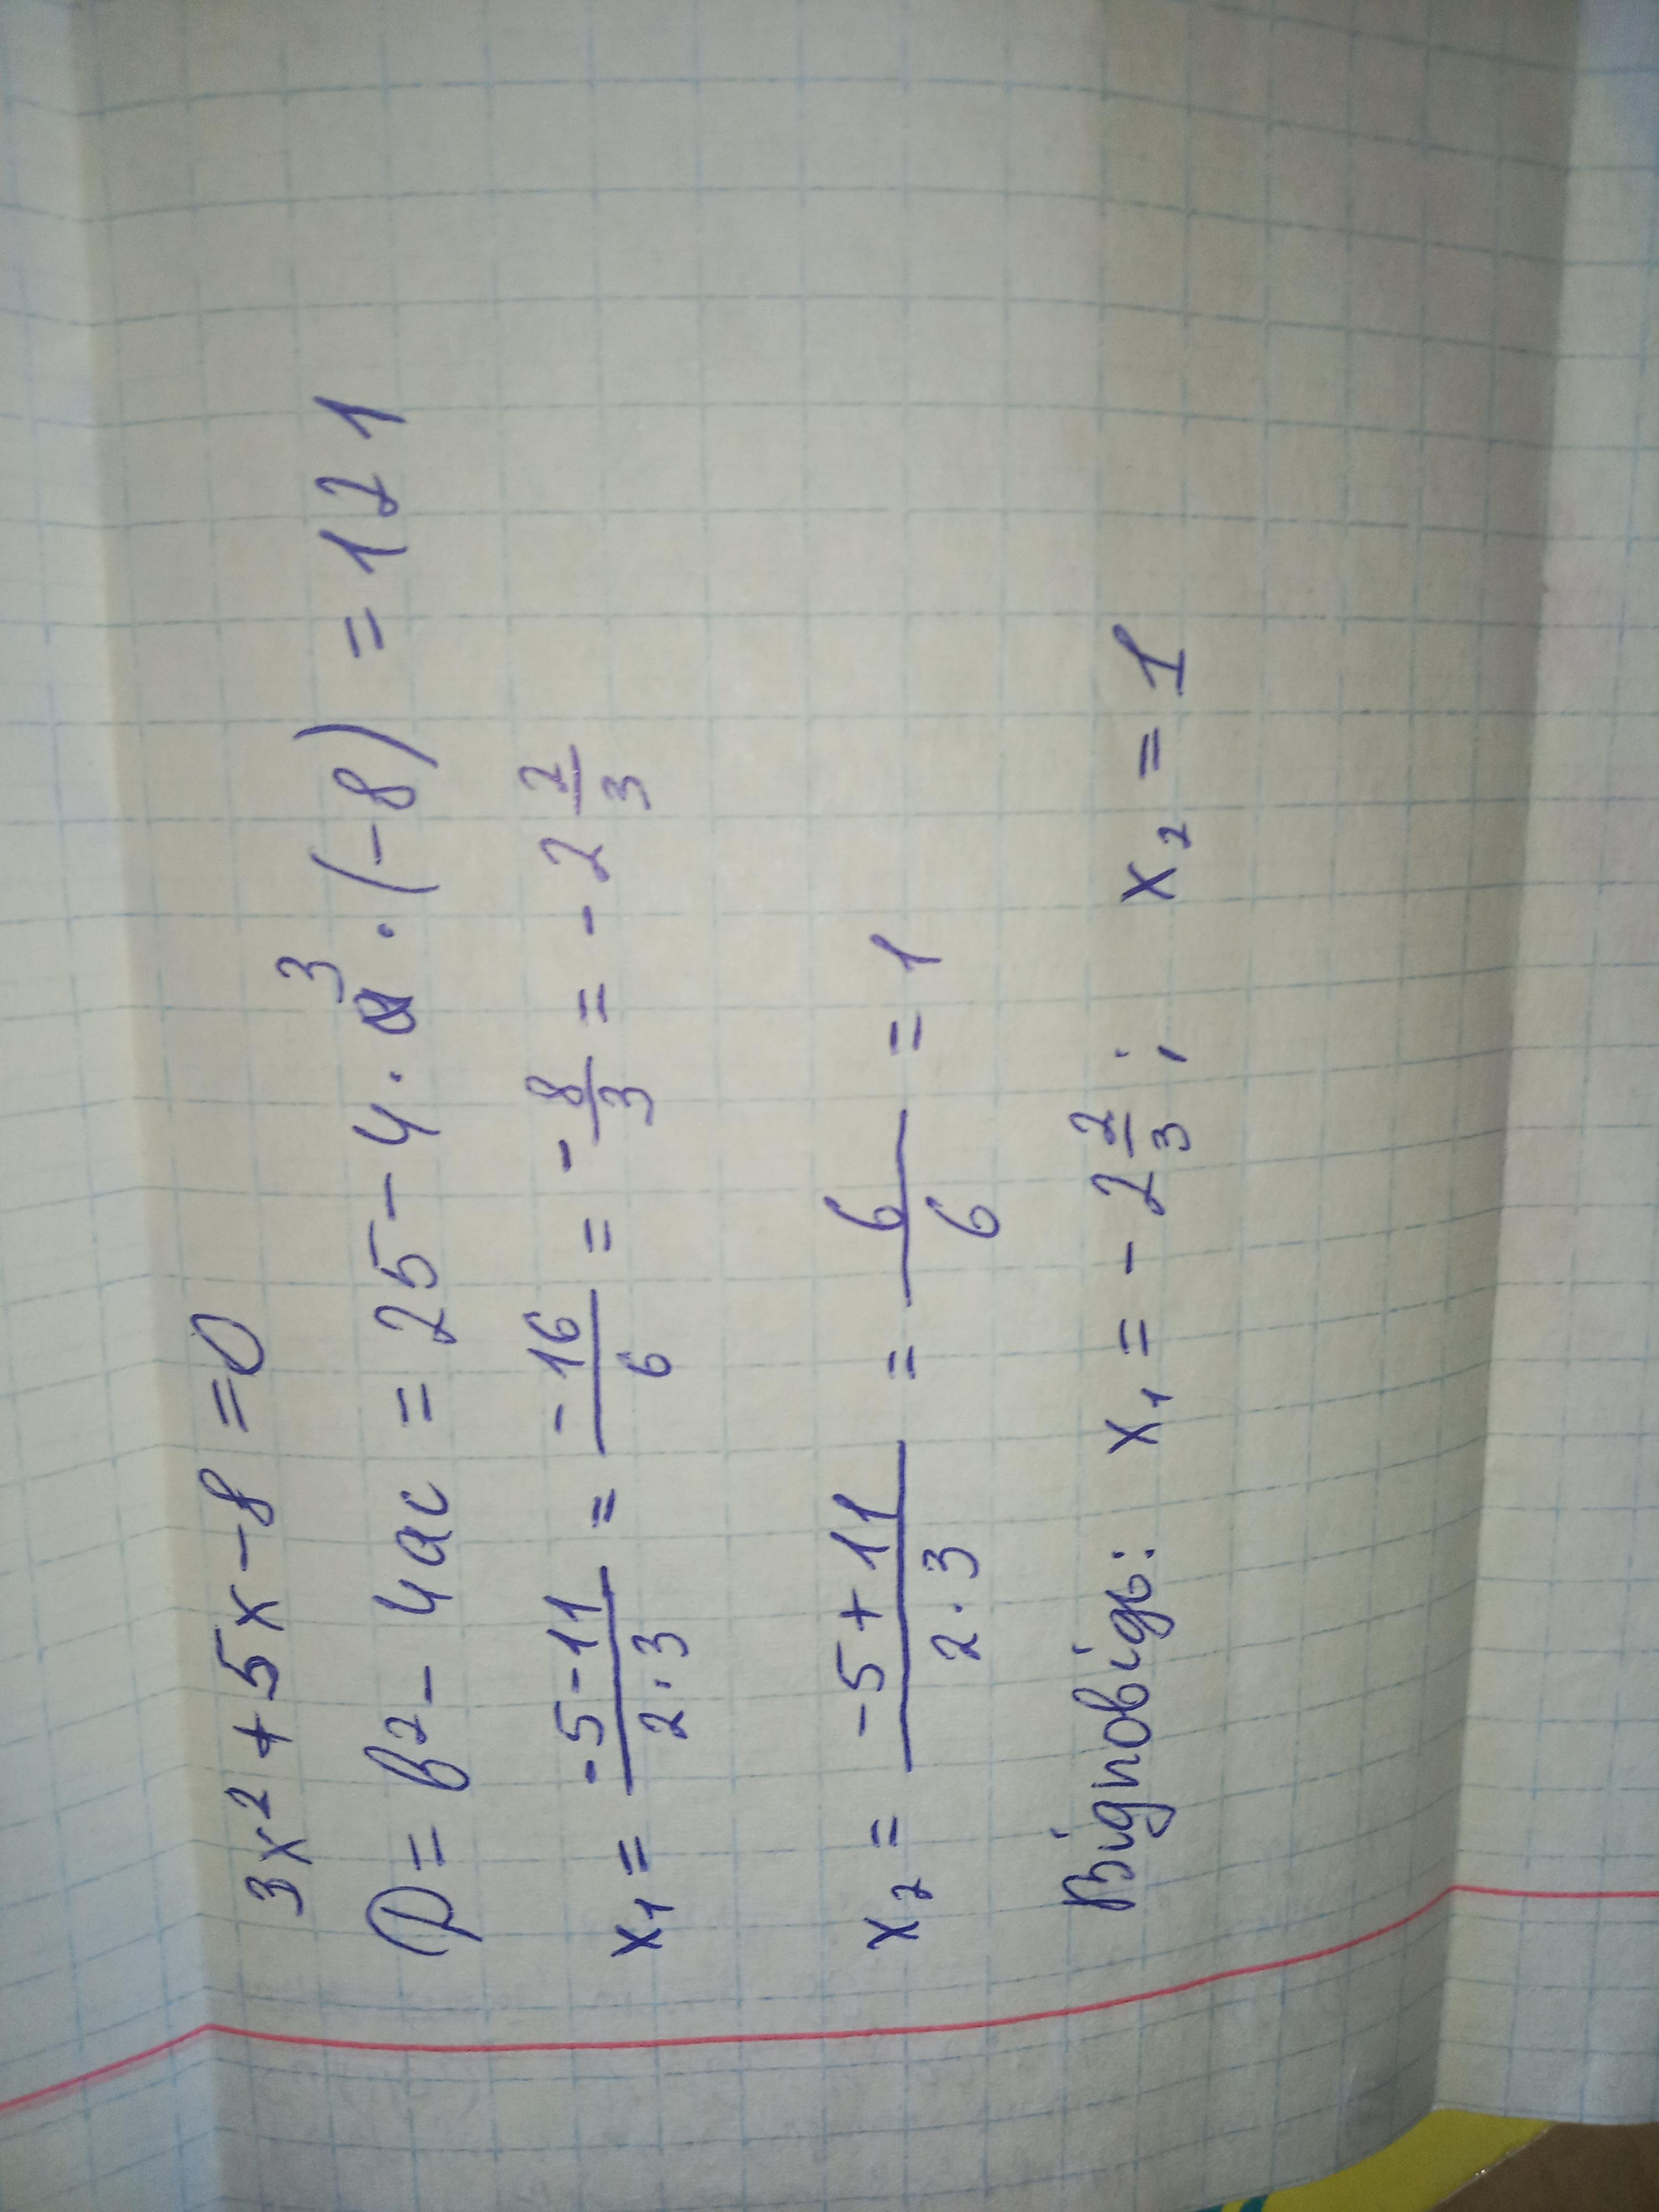 3x² + 5x - 8 = 0
D = b² - 4ac = 25 - 4 · 3 · (-8) = 121
x₁ = (-5 - 11)/(2 · 3) = -16/6 = -8/3 = -2 2/3
x₂ = (-5 + 11)/(2 · 3) = 6/6 = 1
Відповідь: x₁ = -2 2/3 ; x₂ = 1